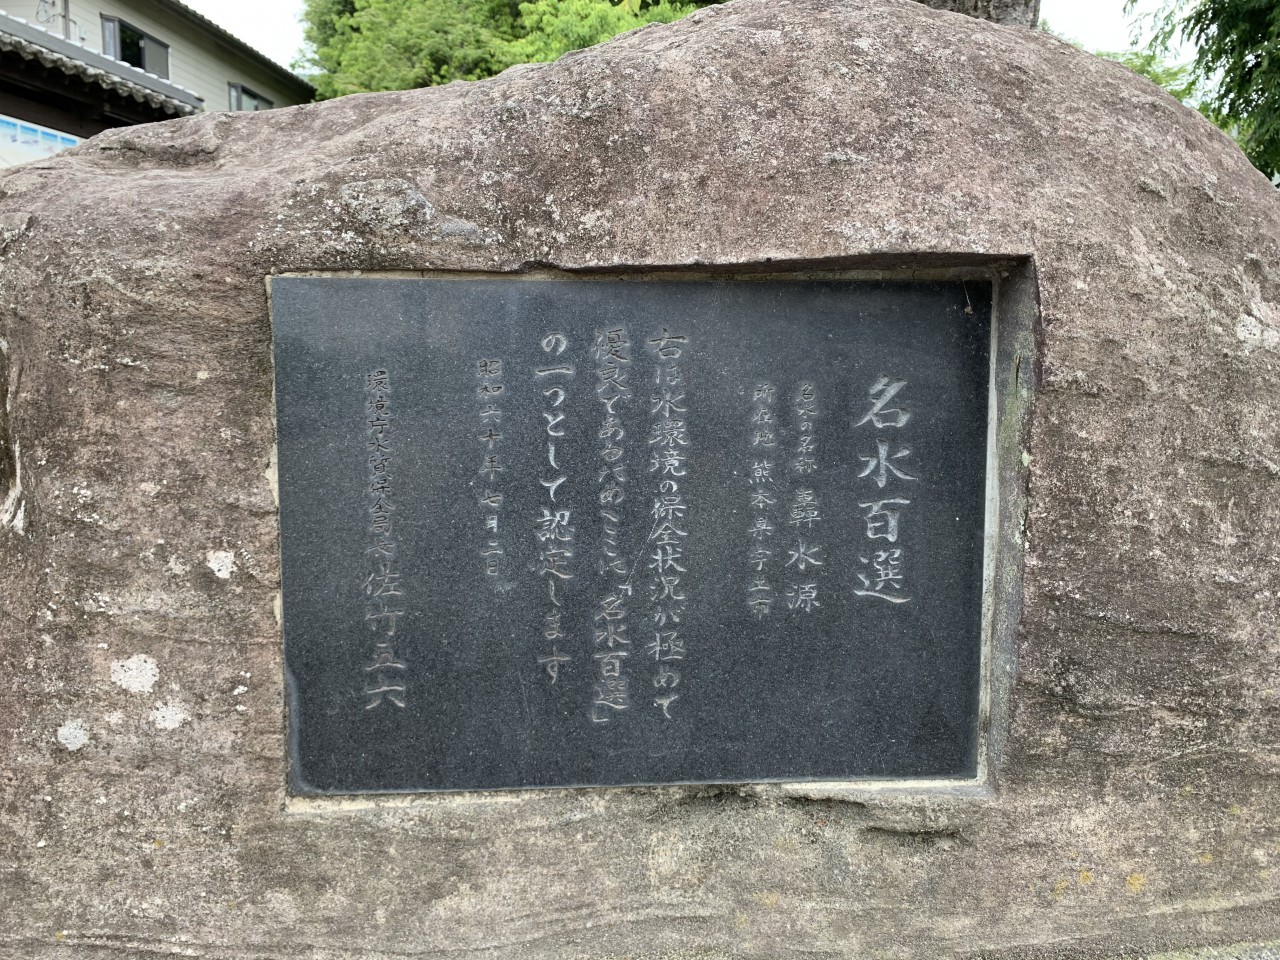 名水百選
名水の名称 轟水源
所在地 熊本県宇土市
右は水環境の保全状況が極めて
優良であるためここに「名水百選」
の一つとして認定します
昭和六十年七月二日
環境庁水質保全局長 佐竹五六